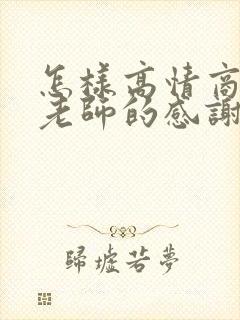 怎樣高情商
老師的感謝
歸墟若夢